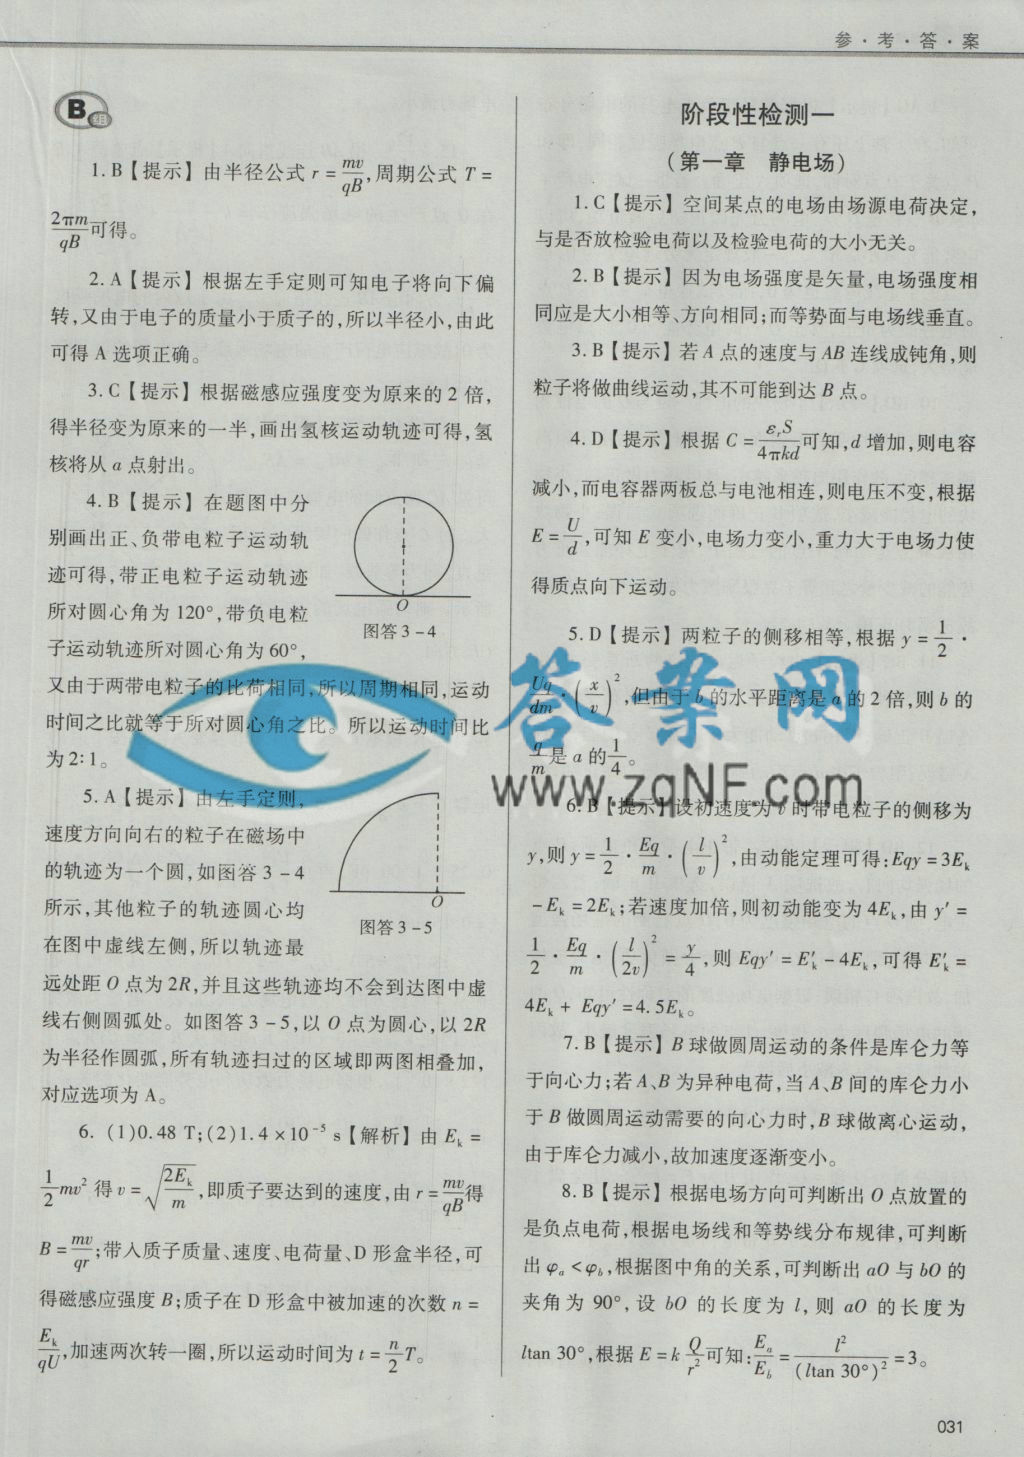 参·考·答·案
B组
1. B【提示】由半径公式 r = mv/qB, 周期公式 T =
2πm/qB 可得。
2. A【提示】根据左手定则可知电子将向下偏
转,又由于电子的质量小于质子的,所以半径小,由此
可得 A 选项正确。
3. C【提示】根据磁感应强度变为原来的 2 倍,
得半径变为原来的一半,画出氢核运动轨迹可得,氢
核将从 a 点射出。
4. B【提示】在题图中分
别画出正、负带电粒子运动轨
迹可得,带正电粒子运动轨迹
所对圆心角为 120°,带负电粒
子运动轨迹所对圆心角为 60°,
O
图答 3-4
又由于两带电粒子的比荷相同,所以周期相同,运动
时间之比就等于所对圆心角之比。所以运动时间比
为 2:1。
5. A【提示】由左手定则,
速度方向向右的粒子在磁场中
的轨迹为一个圆,如图答 3-4
所示,其他粒子的轨迹圆心均
在图中虚线左侧,所以轨迹最
O
图答 3-5
远处距 O 点为 2R,并且这些轨迹均不会到达图中虚
线右侧圆弧处。如图答 3-5,以 O 点为圆心,以 2R
为半径作圆弧,所有轨迹扫过的区域即两图相叠加,
对应选项为 A。
6. (1)0.48 T;(2)1.4×10⁻⁵ s【解析】由 Eₖ =
1/2 mv² 得 v = √(2Eₖ/m), 即质子要达到的速度,由 r = mv/qB 得
B = mv/qr; 带入质子质量、速度、电荷量、D 形盒半径,可
得磁感应强度 B;质子在 D 形盒中被加速的次数 n =
Eₖ/qU, 加速两次转一圈,所以运动时间为 t = n/2 T。
阶段性检测一
(第一章 静电场)
1. C【提示】空间某点的电场由场源电荷决定,
与是否放检验电荷以及检验电荷的大小无关。
2. B【提示】因为电场强度是矢量,电场强度相
同应是大小相等、方向相同;而等势面与电场线垂直。
3. B【提示】若 A 点的速度与 AB 连线成钝角,则
粒子将做曲线运动,其不可能到达 B 点。
4. D【提示】根据 C = εᵣS/4πkd 可知,d 增加,则电容
减小,而电容器两板总与电池相连,则电压不变,根据
E = U/d, 可知 E 变小,电场力变小,重力大于电场力使
得质点向下运动。
5. D【提示】两粒子的侧移相等,根据 y = 1/2 ·
Uq/dm · (x/v)², 但由于 b 的水平距离是 a 的 2 倍,则 b 的
q/m 是 a 的 1/4。
6. B【提示】设初速度为 v 时带电粒子的侧移为
y,则 y = 1/2 · Eq/m · (l/v)², 由动能定理可得:Eqy = 3Eₖ
- Eₖ = 2Eₖ;若速度加倍,则初动能变为 4Eₖ,由 y′ =
1/2 · Eq/m · (l/2v)² = y/4, 则 Eqy′ = E′ₖ - 4Eₖ,可得 E′ₖ =
4Eₖ + Eqy′ = 4.5Eₖ。
7. B【提示】B 球做圆周运动的条件是库仑力等
于向心力;若 A、B 为异种电荷,当 A、B 间的库仑力小
于 B 做圆周运动需要的向心力时,B 球做离心运动,
由于库仑力减小,故加速度逐渐变小。
8. B【提示】根据电场方向可判断出 O 点放置的
是负点电荷,根据电场线和等势线分布规律,可判断
出 φₐ < φ_b,根据图中角的关系,可判断出 aO 与 bO 的
夹角为 90°,设 bO 的长度为 l,则 aO 的长度为
ltan 30°,根据 E = k Q/r² 可知: Eₐ/E_b = l²/(ltan 30°)² = 3。
答案网
www.zqNF.com
031